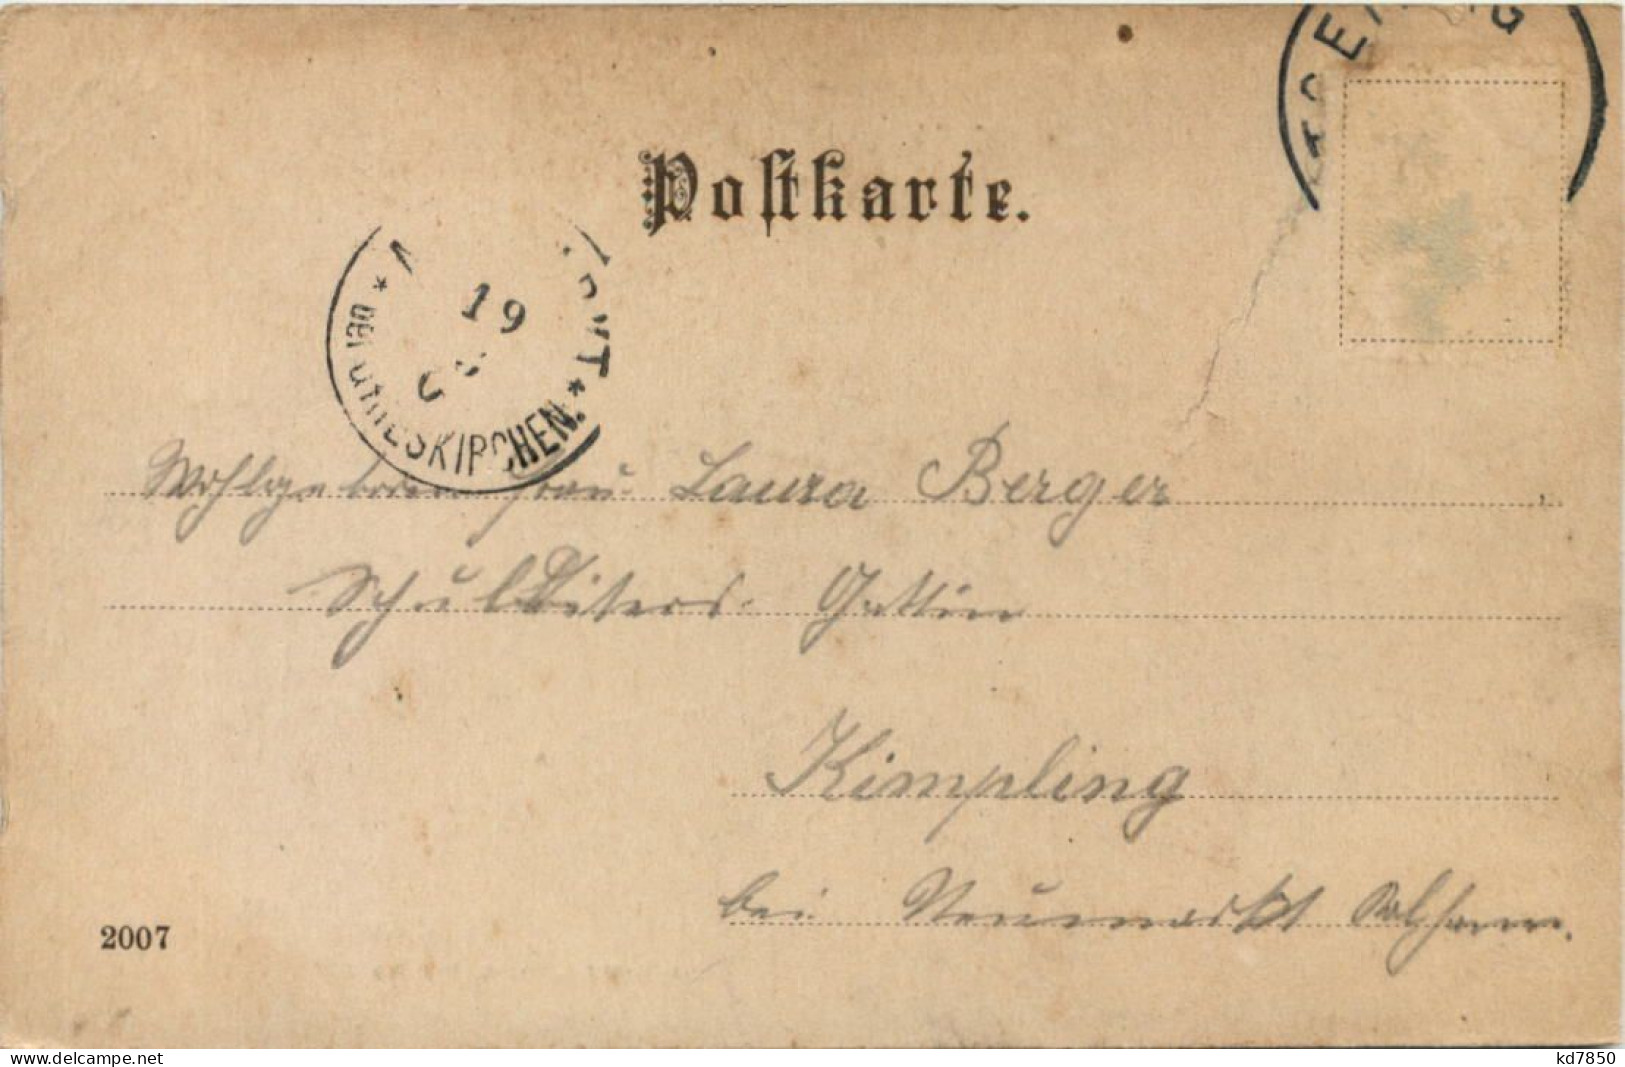 Postkarte.
19
UTHESKIRCHEN.
Wohlgeborene Frau Laura Berger
Schulleiters-Gattin
Kimpling
bei Neumarkt
2007
www.delcampe.net
kd7850